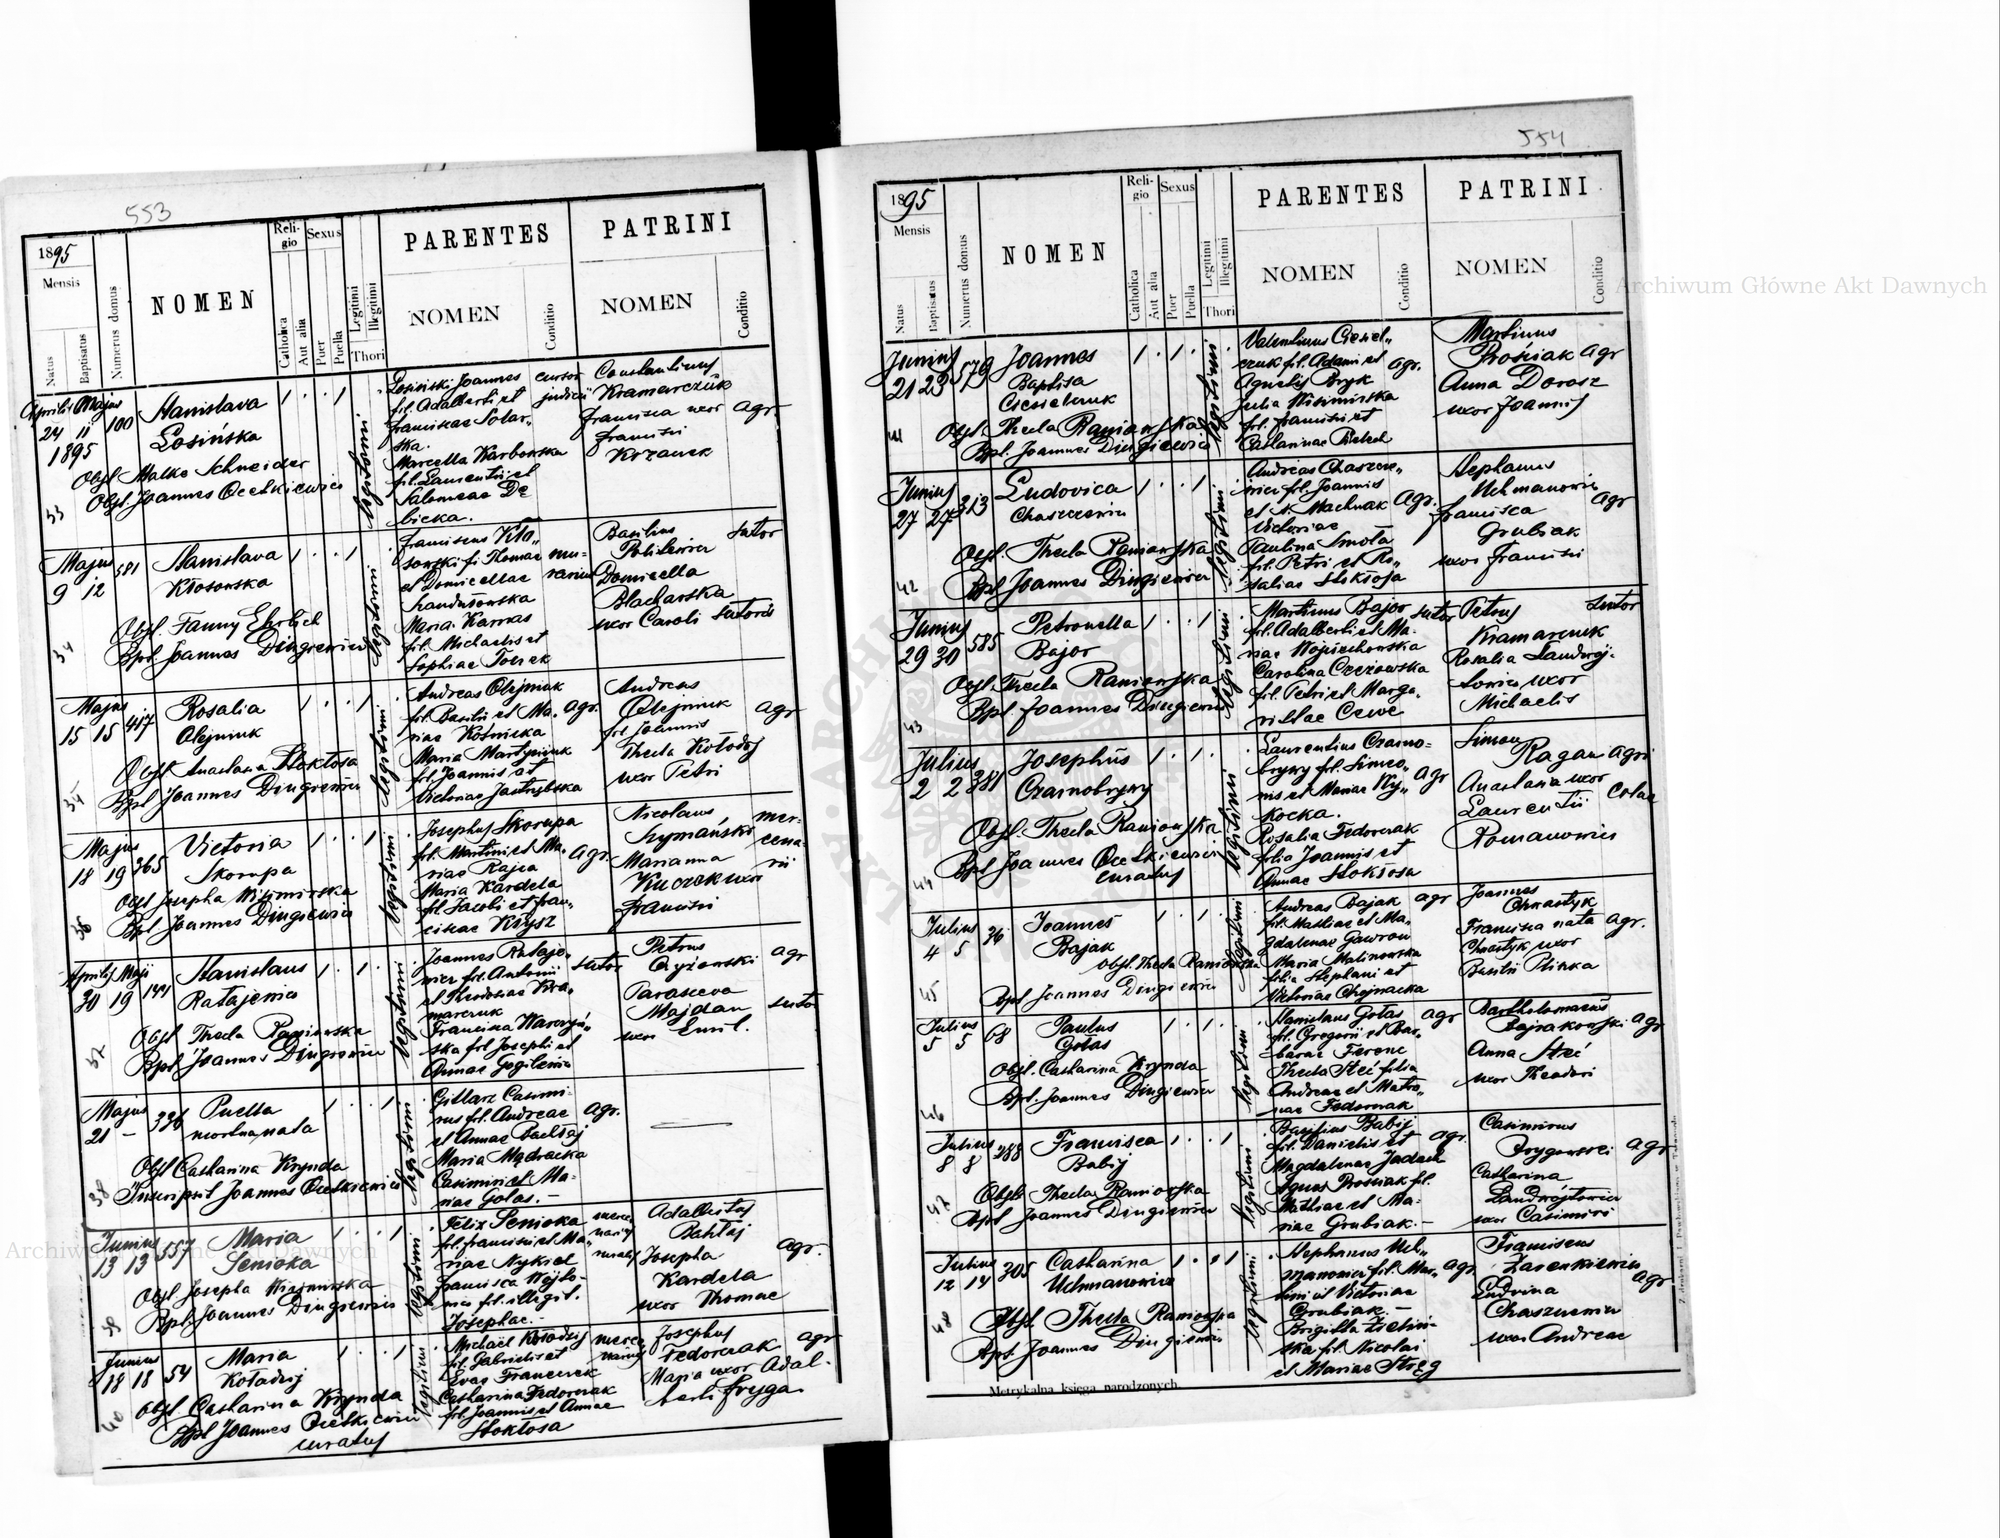 553
1895
Mensis
Natus
Baptisatus
Numerus domus
NOMEN
Religio
Catholica
Aut alia
Sexus
Puer
Puella
Legitimi
Illegitimi
Thori
PARENTES
NOMEN
Conditio
PATRINI
NOMEN
Conditio
Aprilis Majus
24 11 100
1895
Stanislava
Łosińska
Obst Malke Schneider
Bpt. Joannes Ocetkiewicz
33
legitimi
Łosiński Joannes cursor
fil. Adalberti et judicii
Franciscae Solar„
ska.
Marcella Karbowska
fil. Laurentii et
Salomeae De
bicka.
Constantinus
Kramarczuk
Francisca uxor agr.
Francisci
Majus
9 12 581
Stanislava
Kłosowska
Obst. Fanny Ehrlich
Bpt. Joannes Dingiewicz
34
legitimi
Franciscus Kło„
sowski fi. Thomae
et Domicellae
Maria Karnas
fil. Michaelis et
Sophiae
Basilius sutor
Domicella
Blacharska
uxor Caroli sutoris
Majus
15 15 417
Rosalia
Olejniuk
Obst Anastasia Stokłosa
Bpt Joannes Dingiewicz
35
legitimi
Andreas Olejniuk
fil. Basilii et Ma„ agr.
riae Kotnicka
Maria Martyniuk
fil. Joannis et
Victoriae Jastrzębska
Andreas
Olejniuk agr
fil Joannis
Thecla Kołodzij
uxor Petri
Majus
18 19 365
Victoria
Skorupa
Obst Josepha Wiśmirska
Bpt. Joannes Dingiewicz
36
legitimi
Josephus Skorupa
fil. Martini et Ma„ agr.
riae Rajca
Maria Kardela
fil. Jacobi et Fran„
ciscae Krysz
Nicolaus mer-
Szymański cena-
Marianna rii
Kuczek uxor
Francisci
Aprilis Maji
30 19 144
Stanislaus
Ratajewicz
Obst Thecla Raniowska
Bpt. Joannes Dingiewicz
37
legitimi
Joannes Rataje„
wicz fil. Antonii sutor
et Theodosiae Kra„
marczuk
Francisca Warczyń„
ska fil Josephi et
Annae Gogilewicz
Petrus agr
Czyżewski
Parasceva
Majdan sutor
uxor Emil.
Majus
21 – 336
Puella
mortua nata
Obst Catharina Krynda
Inscripsit Joannes Ocetkiewicz
38
legitimi
Gillarz Casimi-
rus fil. Andreae agr.
et Annae
Maria Mądracka
Casimiri et Ma-
riae Gołas. –
Junius
13 13 557
Maria
Senioka
Obst Josepha Wiśmirska
Bpt. Joannes Dingiewicz
39
legitimi
Felix Senioka merce
fil. Francisci et Ma„
riae Nykiel
Francisca Wojto-
wicz fil. illegit.
Josephae. –
Adalbertus
Bahtaj
Josepha agr.
Kardela
uxor Thomae
Junius
18 18 54
Maria
Kołodzij
Obst. Catharina Krynda
Bpt Joannes Ocetkiewicz
curatus
40
legitimi
Michaël Kołodzij merce
fil. Gabrielis et narius
Evae Franczek
Catharina Fedorczak
fil. Joannis et Annae
Stokłosa
Josephus agr
Fedorczak
Maria uxor Adal-
berti Fryga
554
1895
Mensis
Natus
Baptisatus
Numerus domus
NOMEN
Religio
Catholica
Aut alia
Sexus
Puer
Puella
Legitimi
Illegitimi
Thori
PARENTES
NOMEN
Conditio
PATRINI
NOMEN
Conditio
Junius
21 23 579
Joannes
Baptista
Ciesielczuk
Obst. Thecla Raniowska
Bpt. Joannes Dingiewicz
41
legitimi
Valentinus Ciesiel-
czuk fil. Adami et agr.
Agnetis Bryk
Julia Wiśmirska
fil. Francisci et
Catharinae
Martinus
Prośniak agr
Anna Dorosz
uxor Joannis
Junius
27 27 313
Ludovica
Chaszczewicz
Obst. Thecla Raniowska
Bpt Joannes Dingiewicz
42
legitimi
Andreas Chaszcze„
wicz fil. Joannis
et Machniak agr.
Victoriae
Paulina Smoła
fil. Petri et Ro„
saliae Stokłosa
Stephanus
Uchmanowicz
Francisca agr
Grubiak
uxor Francisci
Junius
29 30 585
Petronella
Bajor
Obst. Thecla Raniowska
Bpt. Joannes Dingiewicz
43
legitimi
Martinus Bajor sutor
fil. Adalberti et Ma-
riae Wojciechowska
Carolina Czyżowska
fil. Petri et Marga-
ritae
Petrus sutor
Kramarczuk
Rosalia Landwój-
towicz uxor
Michaelis
Julius
2 2 381
Josephus
Czarnobrywy
Obst. Thecla Raniowska
Bpt Joannes Ocetkiewicz
curatus
44
legitimi
Laurentius Czarno-
brywy fil. Simeo-
nis et Mariae Wy„ agr
Rosalia Fedorczak
filia Joannis et
Annae Stokłosa
Simon
Ragan agri
Anastasia uxor
Laurentii colae
Romanowicz
Julius
4 5 36
Joannes
Bajak
Obst. Thecla Raniowska
Bpt Joannes Dingiewicz
45
legitimi
Andreas Bajak agr
fil. Mathiae et Ma-
gdalenae Gawron
Maria Malinowska
filia Stephani et
Victoriae Chojnacka
Joannes
Chrastyk
Francisca nata agr.
Chrastyk uxor
Basilii
Julius
5 5 68
Paulus
Gołas
Obst. Catharina Krynda
Bpt. Joannes Dingiewicz
46
legitimi
Stanislaus Gołas agr
fil. Gregorii et Bar-
barae Ferenc
Thecla Steć filia
Andreae et Matro„
nae Fedorczak
Bartholomaeus
Bajrakowski agr
Anna Steć
uxor Theodori
Julius
8 8 288
Francisca
Babij
Obst Thecla Raniowska
Bpt. Joannes Dingiewicz
47
legitimi
Basilius Babij
fil. Danielis et agr.
Magdalenae
Agnes Prosniak fil.
Mathiae et Ma-
riae Grubiak. –
Casimirus
agr
Catharina
Landwójtowicz
uxor Casimiri
Julius
12 14 305
Catharina
Uchmanowicz
Obst. Thecla Raniowska
Bpt. Joannes Dingiewicz
48
legitimi
Stephanus Uch-
manowicz fil. Mar„ agr.
tini et Victoriae
Grubiak. –
Brigitta Zielin-
ska fil. Nicolai
et Mariae Stręg
Franciscus
Zarenkiewicz
Ludvina agr
Chaszczewicz
uxor Andreae
Metrykalna księga narodzonych.
Archiwum Główne Akt Dawnych
Archiwum Główne Akt Dawnych